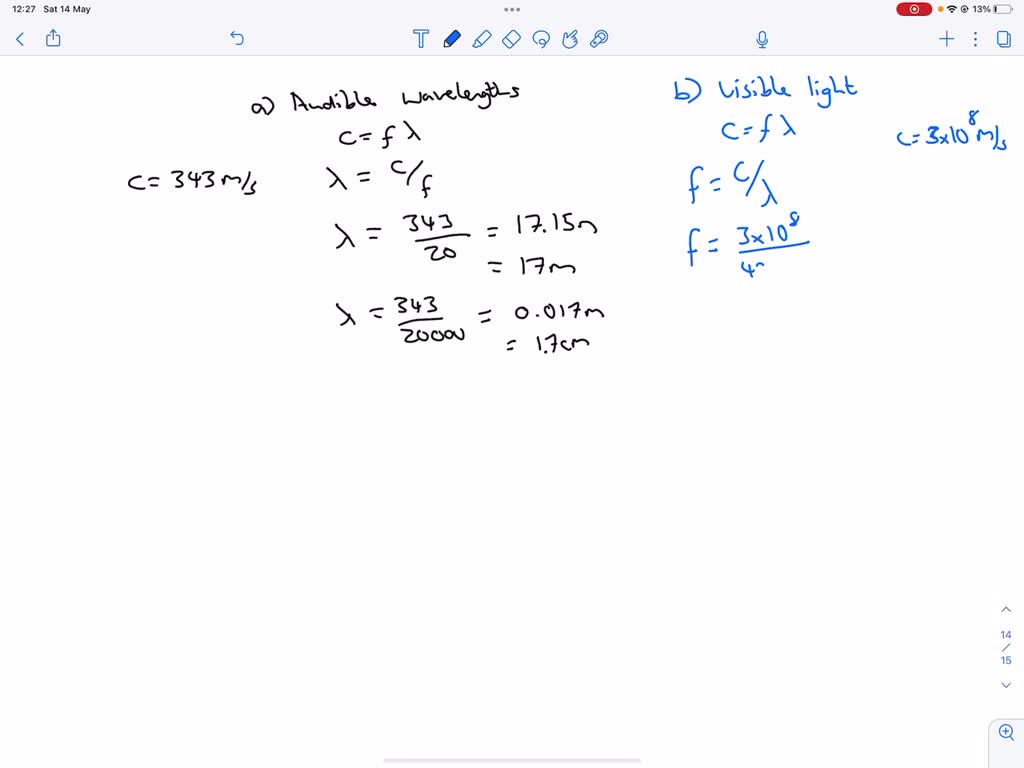 12:27 Sat 14 May
13%
T
a) Audible wavelengths
c = f λ
c = 343 m/s
λ = c/f
λ = 343/20 = 17.15m
= 17m
λ = 343/20000 = 0.017m
= 1.7cm
b) Visible light
c = f λ
c = 3x10⁸ m/s
f = c/λ
f = 3x10⁸/4
14
/
15